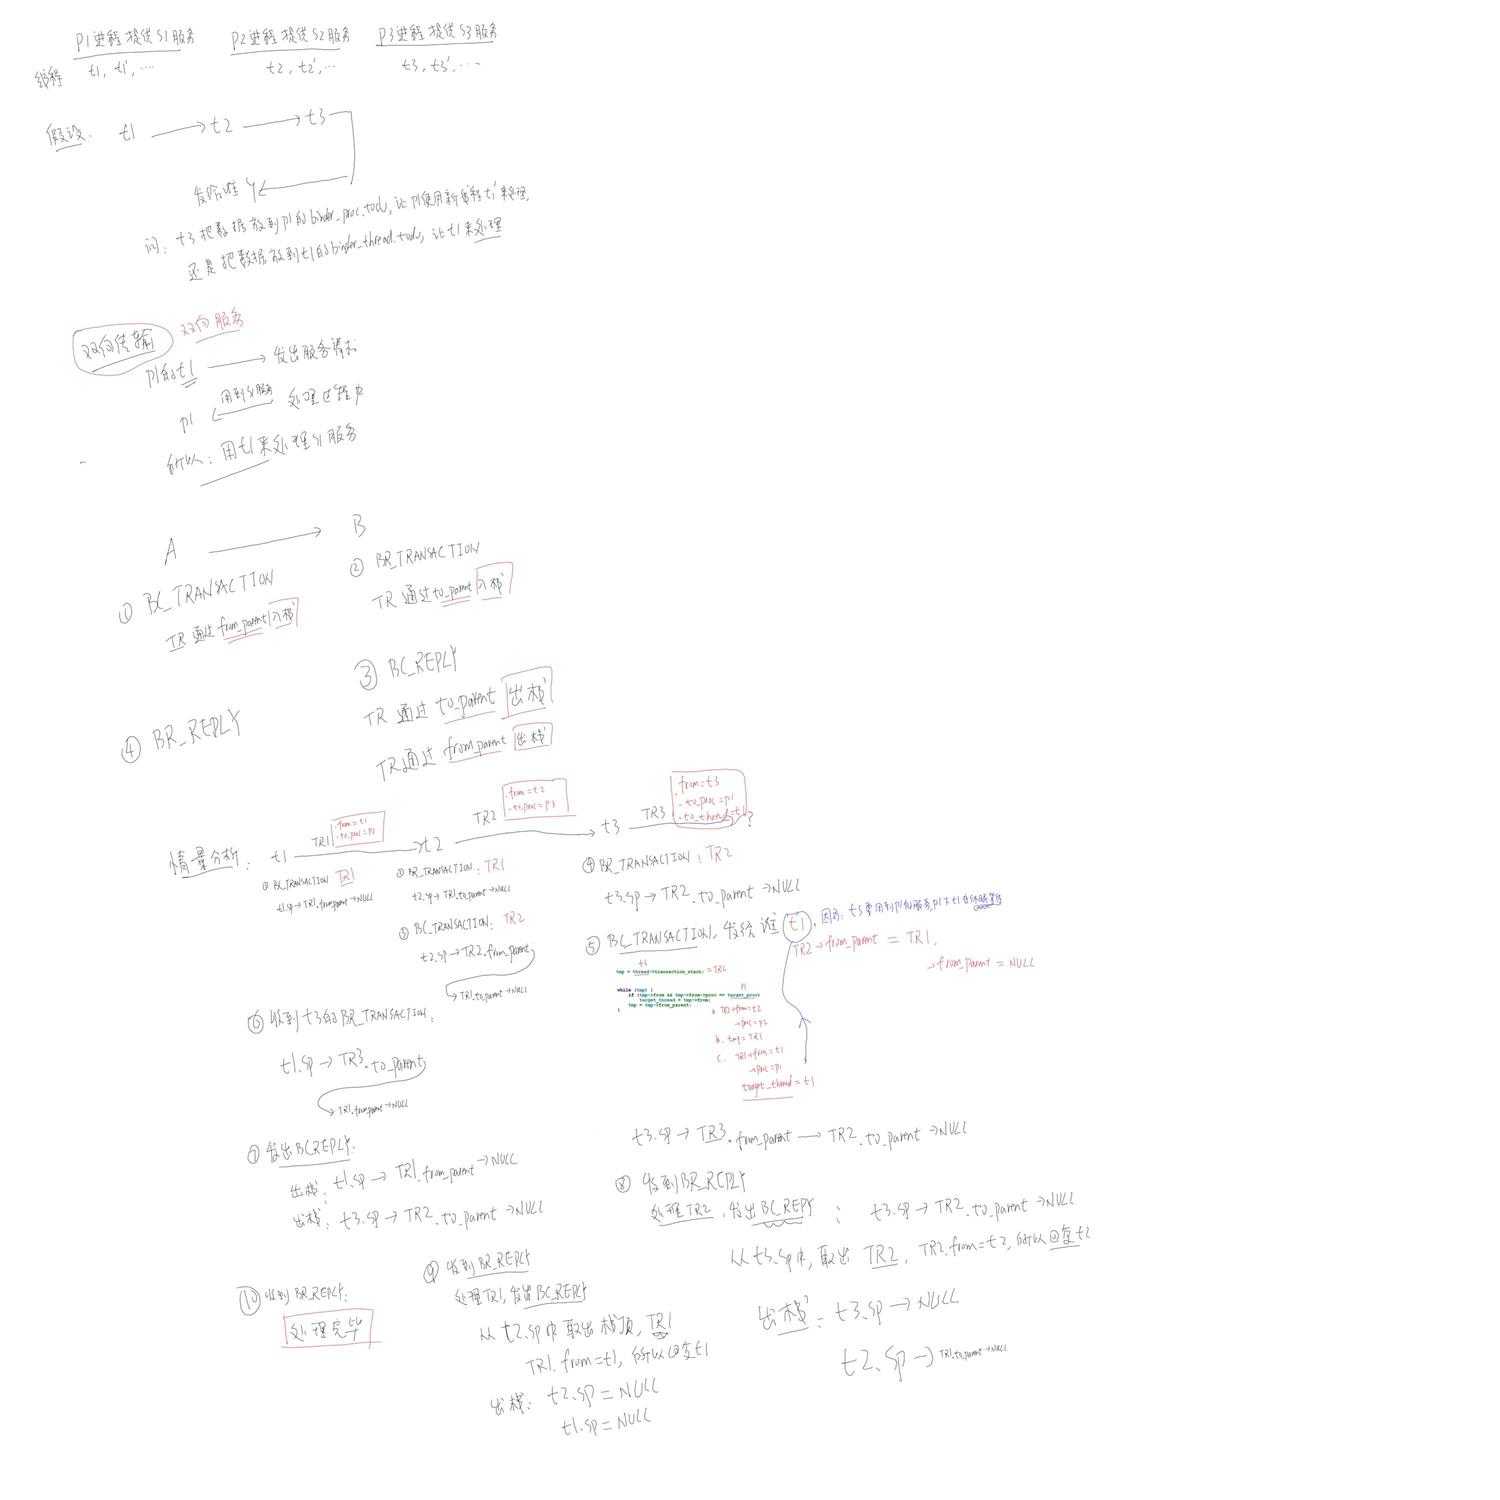 P1进程提供S1服务 P2进程提供S2服务 P3进程提供S3服务
线程 t1, t1', ... t2, t2', ... t3, t3', ...
假设. t1 → t2 → t3
发给谁
问: t3把数据放到p1的binder_proc.todo, 让p1使用新线程t1'来处理,
还是把数据放到t1的binder_thread.todo, 让t1来处理
双向传输 双向服务
p1的t1 → 发出服务请求
p1 ← 用到S1服务 处理过程中
所以: 用t1来处理S1服务
A → B
① BC_TRANSACTION
TR 通过from_parent入栈
② BR_TRANSACTION
TR 通过to_parent入栈
③ BC_REPLY
TR 通过 to_parent 出栈
TR通过 from_parent 出栈
④ BR_REPLY
情景分析: t1 → t2 → t3 ?
TR1 .from=t1
.to_proc=p2
TR2 .from=t2
.to_proc=p3
TR3 .from=t3
.to_proc=p1
.to_thread=t1
① BC_TRANSACTION TR1
t1.sp→TR1.from_parent→NULL
② BR_TRANSACTION: TR1
t2.sp→TR1.to_parent→NULL
③ BC_TRANSACTION: TR2
t2.sp→TR2.from_parent
→TR1.to_parent→NULL
④ BR_TRANSACTION: TR2
t3.sp→TR2.to_parent→NULL
⑤ BC_TRANSACTION, 发给谁 t1, 因为: t3要用到p1的服务, p1的t1
TR2→from_parent = TR1,
→from_parent = NULL
t3
tmp = thread->transaction_stack; = TR2
p1
while (tmp) {
if (tmp->from && tmp->from->proc == target_proc)
target_thread = tmp->from;
tmp = tmp->from_parent;
}
a. TR2→from=t2
→proc=p2
b. tmp=TR1
c. TR1→from=t1
→proc=p1
target_thread=t1
t3.sp→TR3.from_parent → TR2.to_parent→NULL
⑥ 收到t3的BR_TRANSACTION:
t1.sp→TR3.to_parent
→TR1.from_parent→NULL
⑦ 发出BC_REPLY.
出栈: t1.sp→TR1.from_parent→NULL
出栈: t3.sp→TR2.to_parent→NULL
⑧ 收到BR_REPLY
处理TR2, 发出BC_REPY : t3.sp→TR2.to_parent→NULL
从t3.sp中, 取出 TR2, TR2.from=t2, 所以回复t2
出栈: t3.sp→NULL
t2.sp→TR1.to_parent→NULL
⑨ 收到BR_REPLY
处理TR1, 发出BC_REPLY
从t2.sp中取出栈顶, TR1
TR1.from=t1, 所以回复t1
出栈: t2.sp=NULL
t1.sp=NULL
⑩ 收到BR_REPLY:
处理完毕